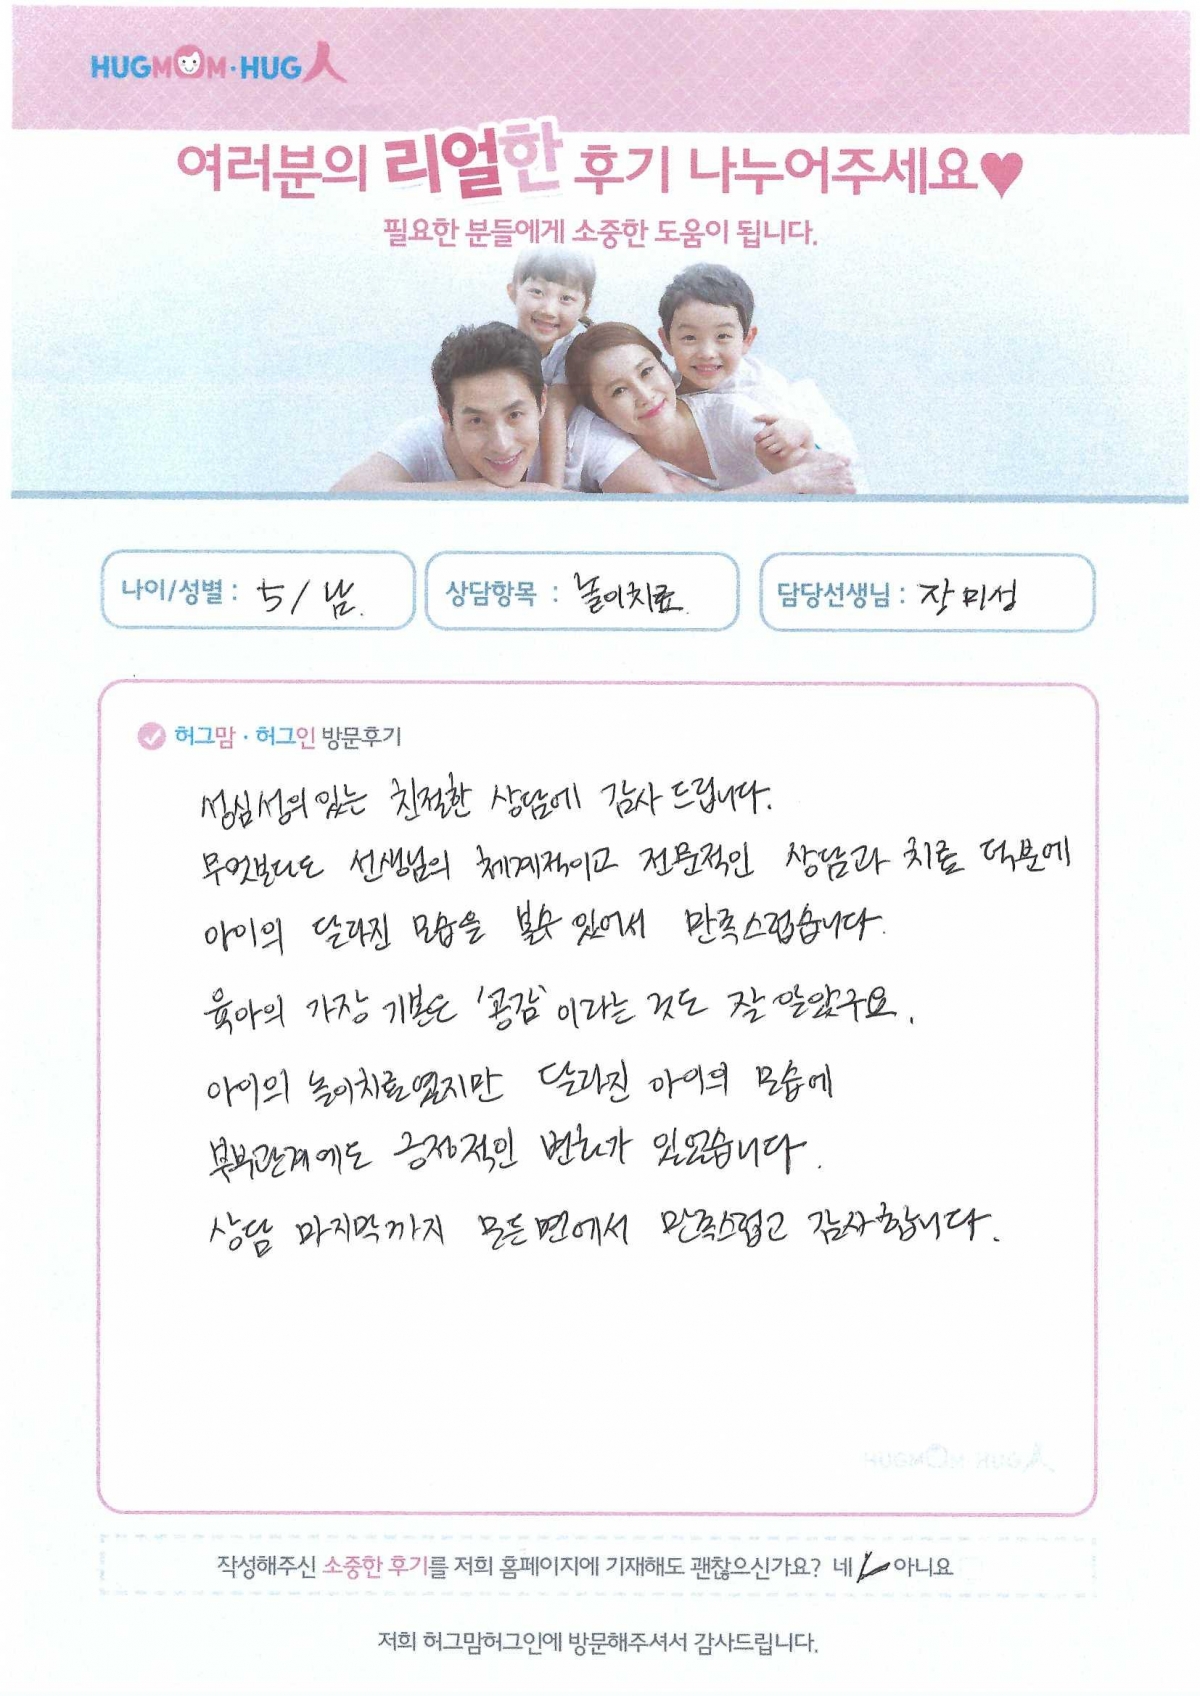 HUGMOM·HUG人
여러분의 리얼한 후기 나누어주세요♥
필요한 분들에게 소중한 도움이 됩니다.
나이/성별 : 5 / 남.
상담항목 : 놀이치료
담당선생님 : 장미성
허그맘 · 허그인 방문후기
성심성의있는 친절한 상담에 감사 드립니다.
무엇보다도 선생님의 체계적이고 전문적인 상담과 치료 덕분에
아이의 달라진 모습을 볼수 있어서 만족스럽습니다.
육아의 가장 기본은 '공감' 이라는 것도 잘 알았구요.
아이의 놀이치료였지만 달라진 아이의 모습에
부부관계에도 긍정적인 변화가 있었습니다.
상담 마지막까지 모든면에서 만족스럽고 감사합니다.
작성해주신 소중한 후기를 저희 홈페이지에 기재해도 괜찮으신가요? 네 아니요
저희 허그맘허그인에 방문해주셔서 감사드립니다.